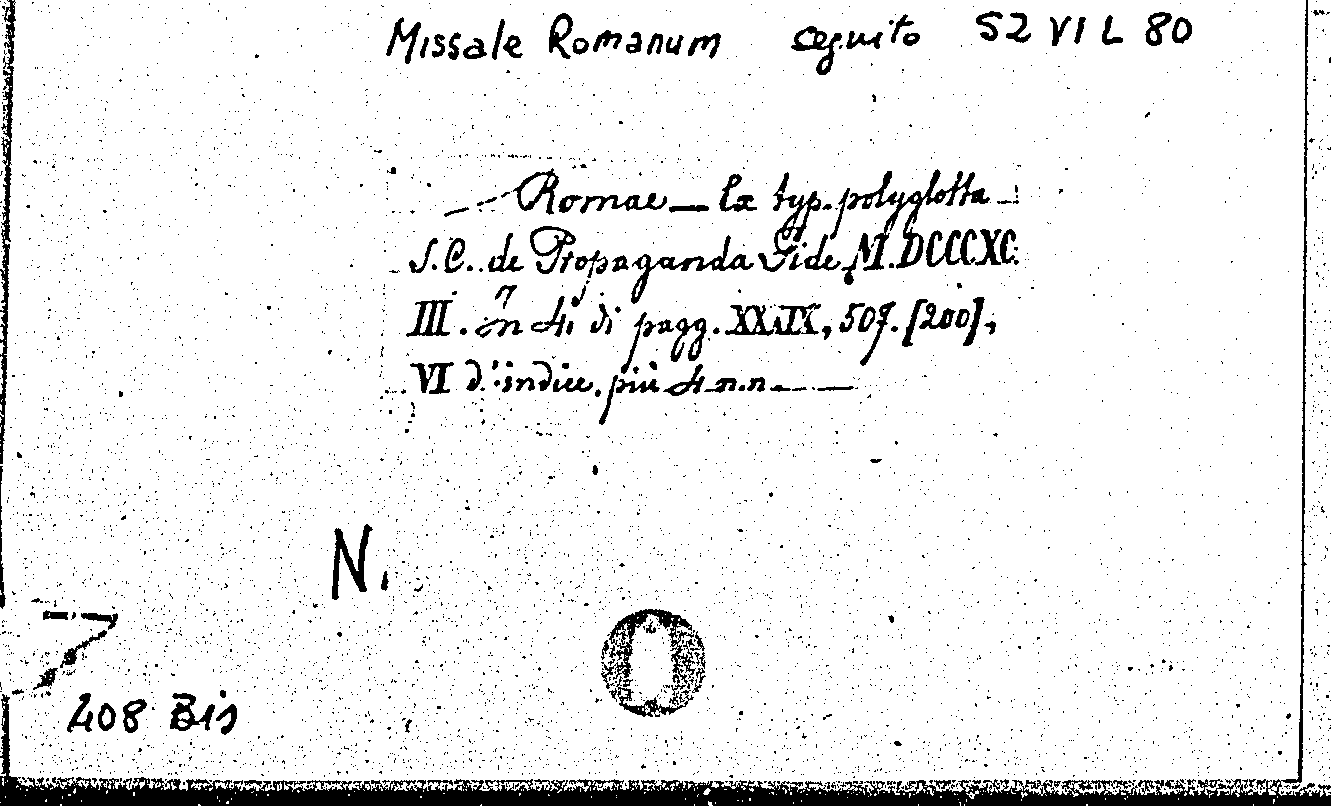 Missale Romanum seguito S2 VI L 80
Romae — Ex typ. polyglotta
S. C. de Propaganda Fide, M.DCCCXC.
III. in 4; di pagg. XXXIX, 507. [200],
VI d'indice, più 4 n.n. —
N.
408 Bis